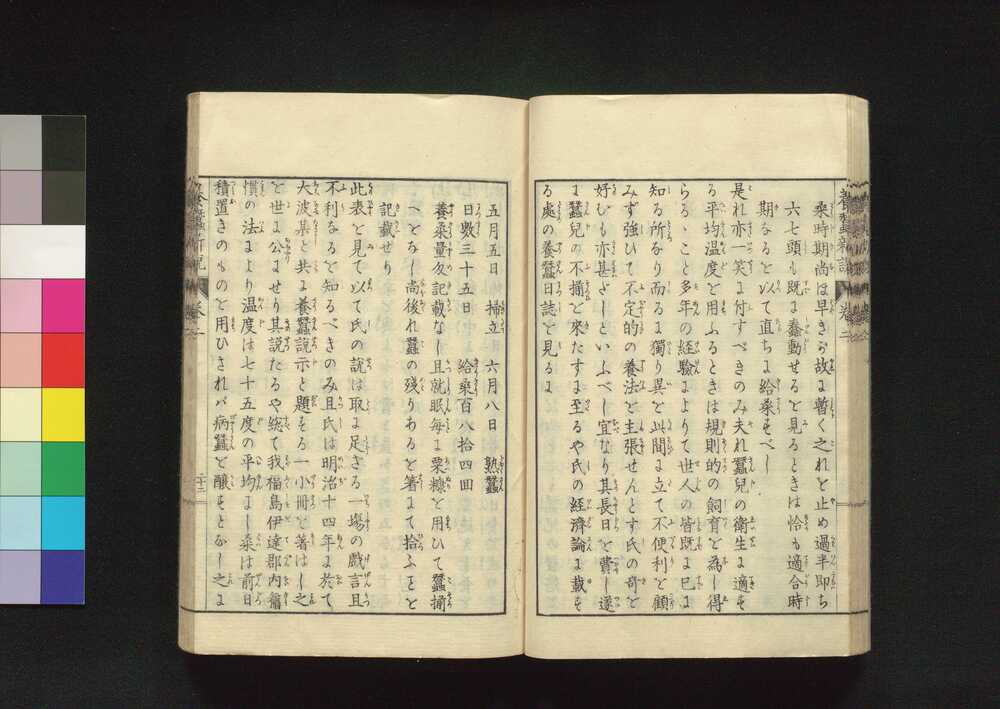 桑時期尚ほ早きが故に暫く之れを止め過半即ち
六七頭も既に蠢動せると見るときは恰も適合時
期なるを以て直ちに給桑すべし
是れ亦一笑に付すべきのみ夫れ蠶兒の衛生に適す
る平均温度を用ふるときは規則的の飼育を為し得
らるゝこと多年の經驗によりて世人の皆既に已に
知る所なり而るに獨り異を此間に立て不便利を顧
みず強ひて不定的の養法を主張せんとす氏の奇を
好むも亦甚だしといふべし宜なり其長日を費し遂
に蠶兒の不揃を來たすに至るや氏の經濟論に載す
る處の養蠶日誌を見るに
養蠶新説 巻二
五月五日 掃立 六月八日 熟蠶
日數三十五日 給桑百八拾四回
養桑量反記載なし且就眠毎に粟糠を用ひて蠶揃
へをなし尚後れ蠶の残りあるを箸にて拾ふことを
記載せり
此表を見て以て氏の説は取に足ざる一塲の戯言且
不利なるを知るべきのみ且氏は明治十四年に於て
大波某と共に養蠶説示と題する一小冊を著はし之
を世に公にせり其説たるや総て我福島伊達郡内舊
慣の法により温度は七十五度の平均にし桑は前日
積置きのものを用ひされバ病蠶を醸すとなし之に
養蠶新説 巻二 二十二